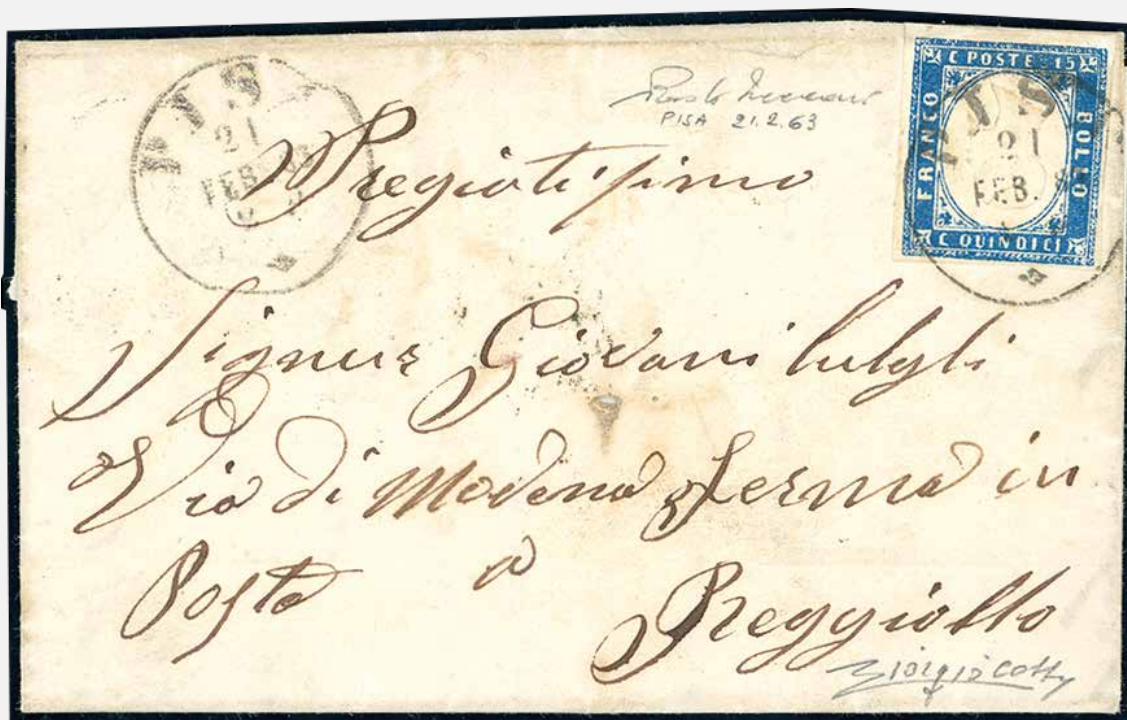 PISA
21
FEB. 63
PISA 21.2.63
C POSTE 15
FRANCO
BOLLO
C QUINDICI
PISA
21
FEB. 6
Pregiatissimo
Signur Giovani Lulgli
Via di Modena ferma in
Posta a
Reggiollo